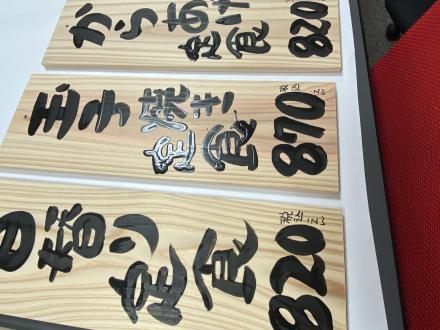 からあげ
定食
820
税込
玉子焼き
定食
870
税込
日替り
定食
820
税込